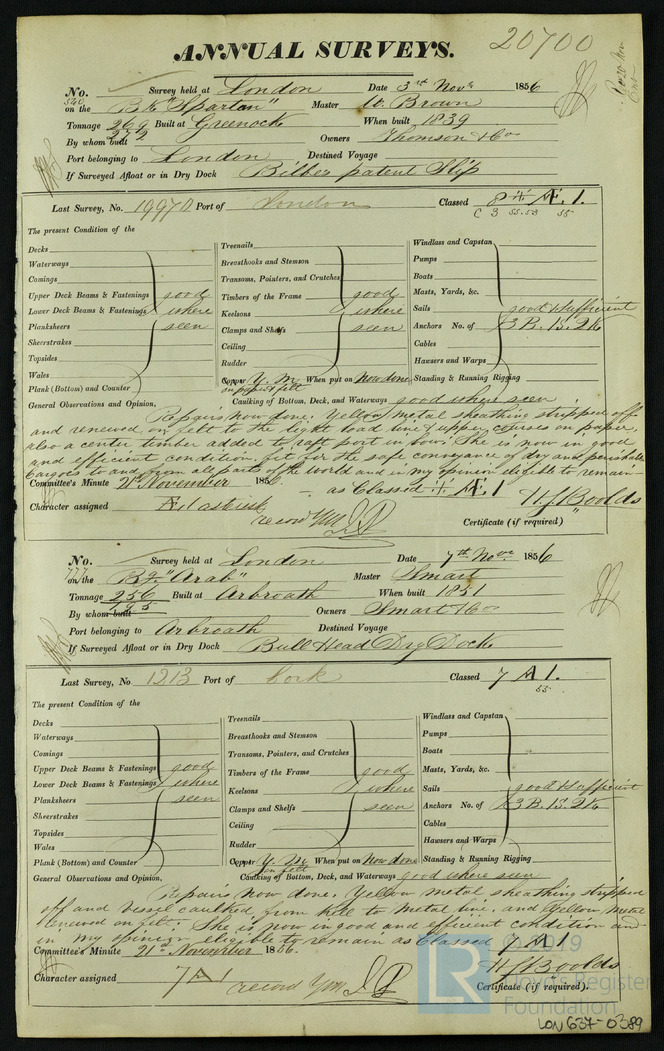 20700
ANNUAL SURVEYS.
No. 540 Survey held at London Date 3rd Novr 1856
on the Bk "Spartan" Master W. Brown
Tonnage 269 Built at Greenock When built 1839
272
By whom built Owners Thomson & Co
Port belonging to London Destined Voyage
If Surveyed Afloat or in Dry Dock Bilbes patent Slip
Last Survey, No. 19970 Port of London Classed 8 Æ 1.
C 3 55.53 55
The present Condition of the
Decks
Waterways
Comings
Upper Deck Beams & Fastenings good
Lower Deck Beams & Fastenings where
Planksheers seen
Sheerstrakes
Topsides
Wales
Plank (Bottom) and Counter
Treenails
Breasthooks and Stemson
Transoms, Pointers, and Crutches
Timbers of the Frame good
Keelsons where
Clamps and Shelfs seen
Ceiling
Rudder
Copper Y. M. When put on Now done
on paper & felt
Windlass and Capstan
Pumps
Boats
Masts, Yards, &c.
Sails good & sufficient
Anchors No. of 3 B. 1S. 2K
Cables
Hawsers and Warps
Standing & Running Rigging
General Observations and Opinion, Caulking of Bottom, Deck, and Waterways good where seen
Repairs now done. Yellow metal sheathing stripped off
and renewed on felt to the light load line & upper courses on paper
also a center timber added to raft port in bow. She is now in good
and efficient condition, fit for the safe conveyance of dry and perishable
Cargoes to and from all parts of the world and in my opinion eligible to remain
Committee's Minute 21st November 1856. – as Classed Æ 1
Character assigned Æ 1 asterisk H J Boolds
record YM Certificate (if required)
No. 777 Survey held at London Date 7th Novr 1856
on the Bg. "Arab" Master Smart
Tonnage 256 Built at Arbroath When built 1851
195
By whom built Owners Smart & Co
Port belonging to Arbroath Destined Voyage
If Surveyed Afloat or in Dry Dock Bull Head Dry Dock
Last Survey, No 1213 Port of Cork Classed 7 A 1.
55
The present Condition of the
Decks
Waterways
Comings
Upper Deck Beams & Fastenings good
Lower Deck Beams & Fastenings where
Planksheers seen
Sheerstrakes
Topsides
Wales
Plank (Bottom) and Counter
Treenails
Breasthooks and Stemson
Transoms, Pointers, and Crutches
Timbers of the Frame good
Keelsons where
Clamps and Shelfs seen
Ceiling
Rudder
Copper Y. M. When put on Now done
on felt
Windlass and Capstan
Pumps
Boats
Masts, Yards, &c.
Sails good & sufficient
Anchors No. of 3 B. 1S. 2K
Cables
Hawsers and Warps
Standing & Running Rigging
General Observations and Opinion, Caulking of Bottom, Deck, and Waterways good where seen
Repairs now done. Yellow metal sheathing stripped
off and vessel caulked from kell to metal line, and Yellow Metal
renewed on felt. She is now in good and efficient condition and
in my opinion eligible to remain as Classed 7 A 1.
Committee's Minute 21st November 1856.
Character assigned 7 A 1 H J Boolds
record YM Certificate (if required).
LR
2019
Lloyd's Register
Foundation
LON 637-0389